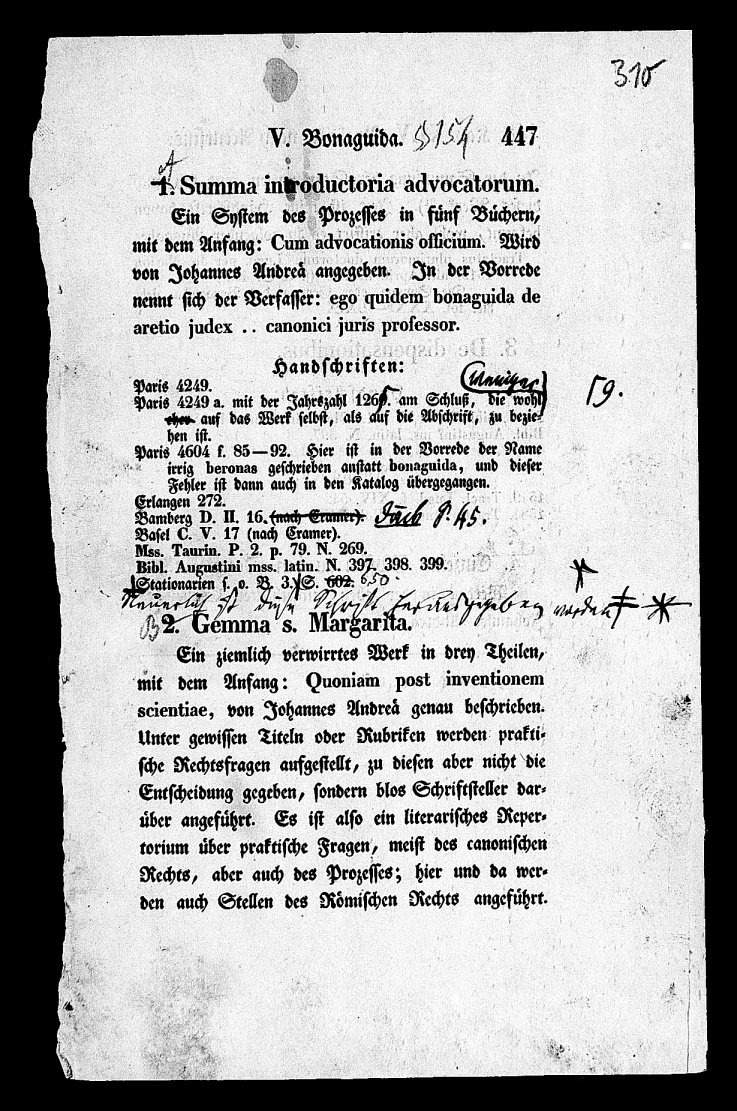 310
V. Bonaguida. § 154 447
A
1. Summa introductoria advocatorum.
Ein System des Prozesses in fünf Büchern,
mit dem Anfang: Cum advocationis officium. Wird
von Johannes Andreä angegeben. In der Vorrede
nennt sich der Verfasser: ego quidem bonaguida de
aretio judex .. canonici juris professor.
Handschriften:
Paris 4249.
weniger
Paris 4249 a. mit der Jahrszahl 1266. am Schluß, die wohl 59.
eher auf das Werk selbst, als auf die Abschrift, zu bezie-
hen ist.
Paris 4604 f. 85—92. Hier ist in der Vorrede der Name
irrig beronas geschrieben anstatt bonaguida, und dieser
Fehler ist dann auch in den Katalog übergegangen.
Erlangen 272.
Bamberg D. II. 16. (nach Cramer). Jäck P. 45.
Basel C. V. 17 (nach Cramer).
Mss. Taurin. P. 2. p. 79. N. 269.
Bibl. Augustini mss. latin. N. 397. 398. 399.
Stationarien s. o. B. 3. S. 602. 650.
Neuerlich ist diese Schrift herausgegeben worden
B 2. Gemma s. Margarita.
Ein ziemlich verwirrtes Werk in drey Theilen,
mit dem Anfang: Quoniam post inventionem
scientiae, von Johannes Andreä genau beschrieben.
Unter gewissen Titeln oder Rubriken werden prakti-
sche Rechtsfragen aufgestellt, zu diesen aber nicht die
Entscheidung gegeben, sondern blos Schriftsteller dar-
über angeführt. Es ist also ein literarisches Reper-
torium über praktische Fragen, meist des canonischen
Rechts, aber auch des Prozesses; hier und da wer-
den auch Stellen des Römischen Rechts angeführt.